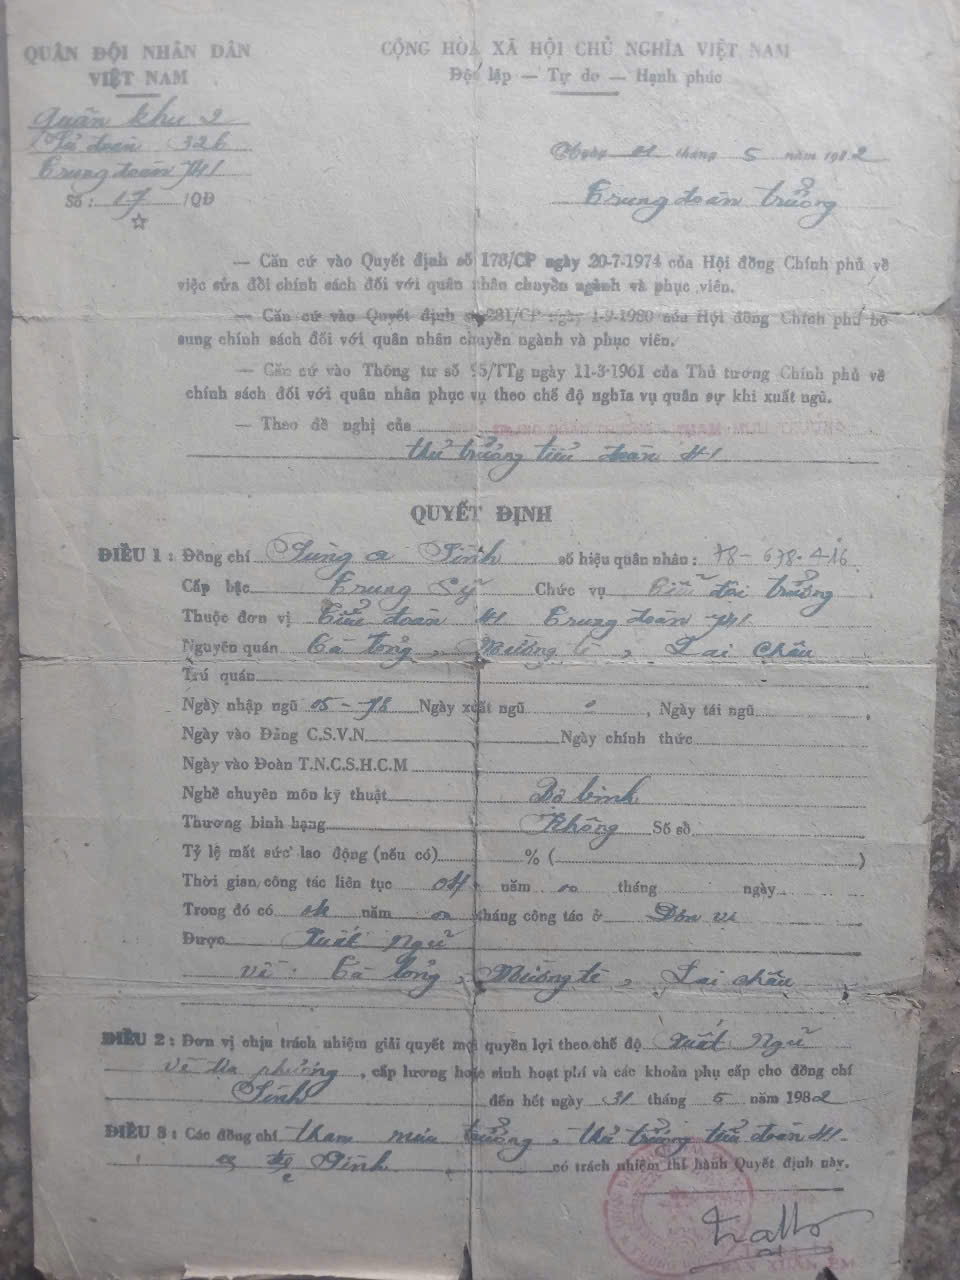 QUÂN ĐỘI NHÂN DÂN
VIỆT NAM
Quân khu 2
Sư đoàn 326
Trung đoàn 741
Số: 17 /QĐ
CỘNG HÒA XÃ HỘI CHỦ NGHĨA VIỆT NAM
Độc lập — Tự do — Hạnh phúc
Ngày 01 tháng 5 năm 1982
Trung đoàn trưởng
— Căn cứ vào Quyết định số 178/CP ngày 20-7-1974 của Hội đồng Chính phủ về
việc sửa đổi chính sách đối với quân nhân chuyển ngành và phục viên.
— Căn cứ vào Quyết định số 281/CP ngày 1-9-1980 của Hội đồng Chính phủ bổ
sung chính sách đối với quân nhân chuyển ngành và phục viên.
— Căn cứ vào Thông tư số 95/TTg ngày 11-3-1961 của Thủ tương Chính phủ về
chính sách đối với quân nhân phục vụ theo chế độ nghĩa vụ quân sự khi xuất ngũ.
— Theo đề nghị của
thủ trưởng tiểu đoàn 41
QUYẾT ĐỊNH
ĐIỀU 1: Đồng chí Sùng A Sính số hiệu quân nhân: 78-678.416
Cấp bậc Trung Sỹ Chức vụ Tiểu đội trưởng
Thuộc đơn vị Tiểu đoàn 41 Trung đoàn 741
Nguyên quán Cà tổng, Mường tè, Lai Châu
Trú quán
Ngày nhập ngũ 05-78 Ngày xuất ngũ , Ngày tái ngũ ,
Ngày vào Đảng C.S.V.N Ngày chính thức
Ngày vào Đoàn T.N.C.S.H.C.M
Nghề chuyên môn kỹ thuật Bộ binh
Thương binh hạng Không Số sổ
Tỷ lệ mất sức lao động (nếu có) % ( )
Thời gian công tác liên tục 04 năm 00 tháng ngày
Trong đó có 04 năm 00 tháng công tác ở Đơn vị
Được Xuất Ngũ
về: Cà tổng, Mường tè, Lai châu
ĐIỀU 2: Đơn vị chịu trách nhiệm giải quyết mọi quyền lợi theo chế độ Xuất Ngũ
về địa phương, cấp lương hoặc sinh hoạt phí và các khoản phụ cấp cho đồng chí
Sính đến hết ngày 31 tháng 5 năm 1982
ĐIỀU 3: Các đồng chí tham mưu trưởng, thủ trưởng tiểu đoàn 41
Sính có trách nhiệm thi hành Quyết định này.